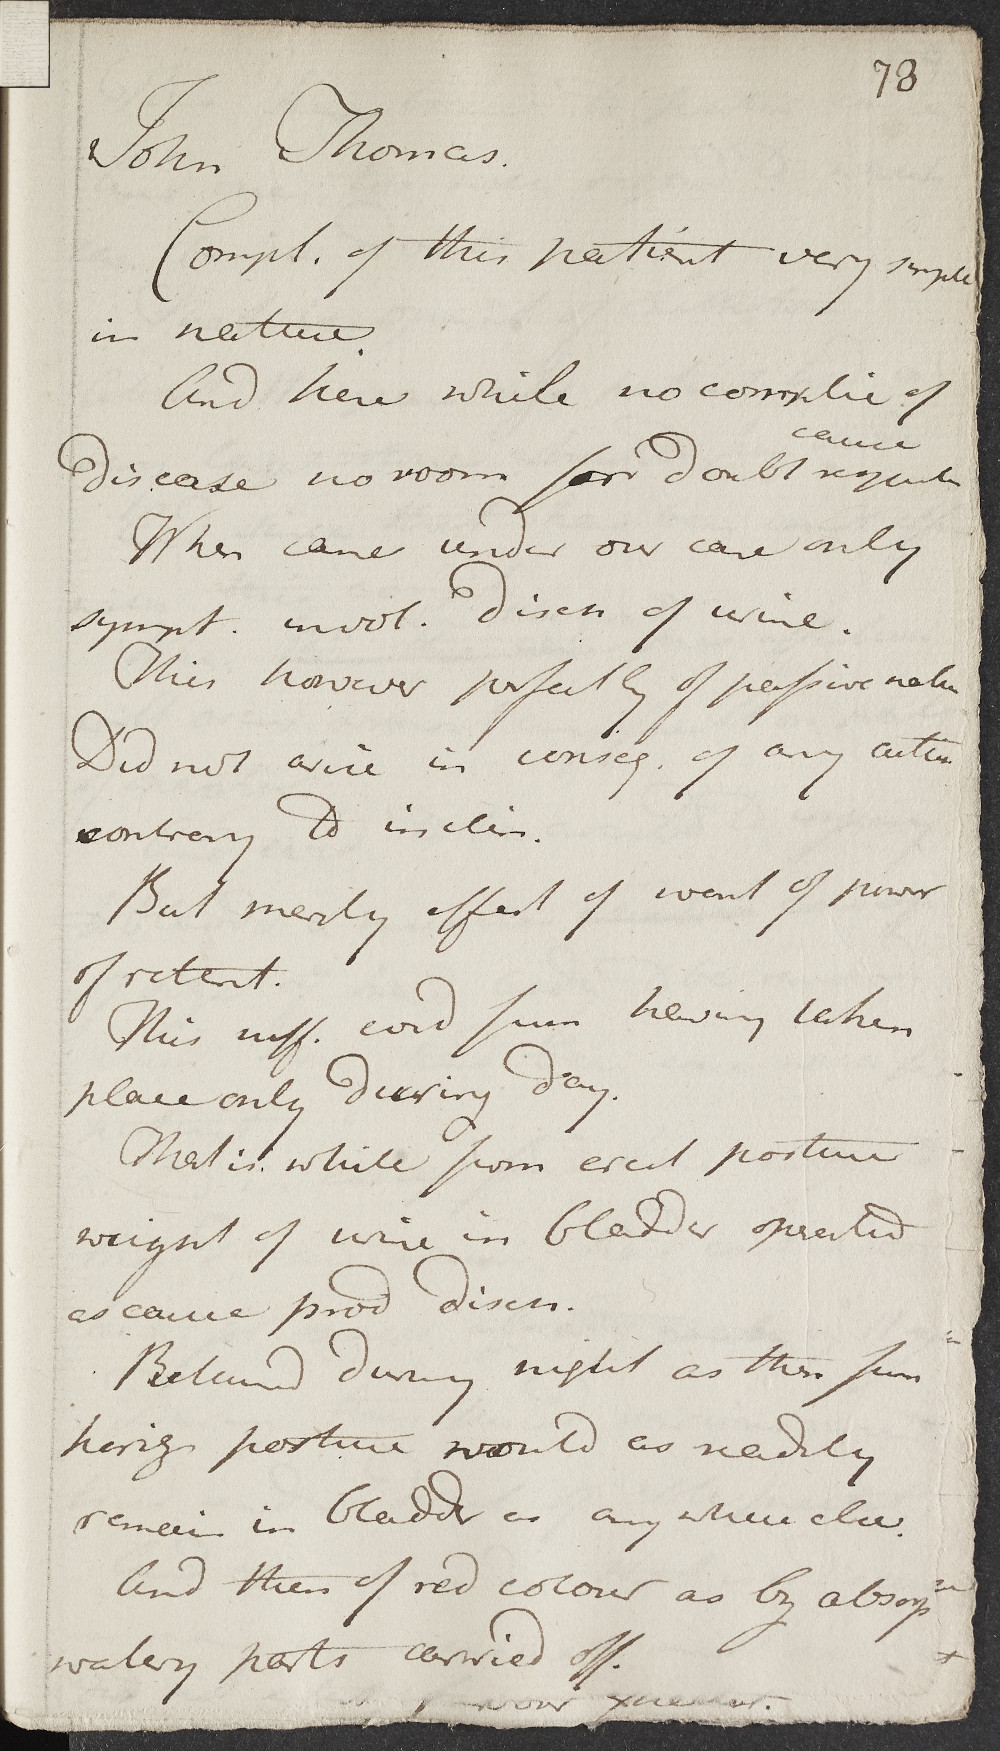 78
John Thomas.
Compl. of this patient very simple
in nature.
And here while no complic of
cause
disease no room for doubt
When came under our care only
sympt. invol. disch of urine.
This however perfectly of passive natu
Did not arise in conseq. of any action
contrary to inclin.
But merely effect of want of power
of retent.
This suff. evid from having taken
place only during day.
That is. while from erect posture
weight of urine in bladder operated
as cause prod disch.
Retained during night as then from
horiz posture would as readily
remain in bladder as any where else.
And then of red colour as by absorp
watery parts carried off.